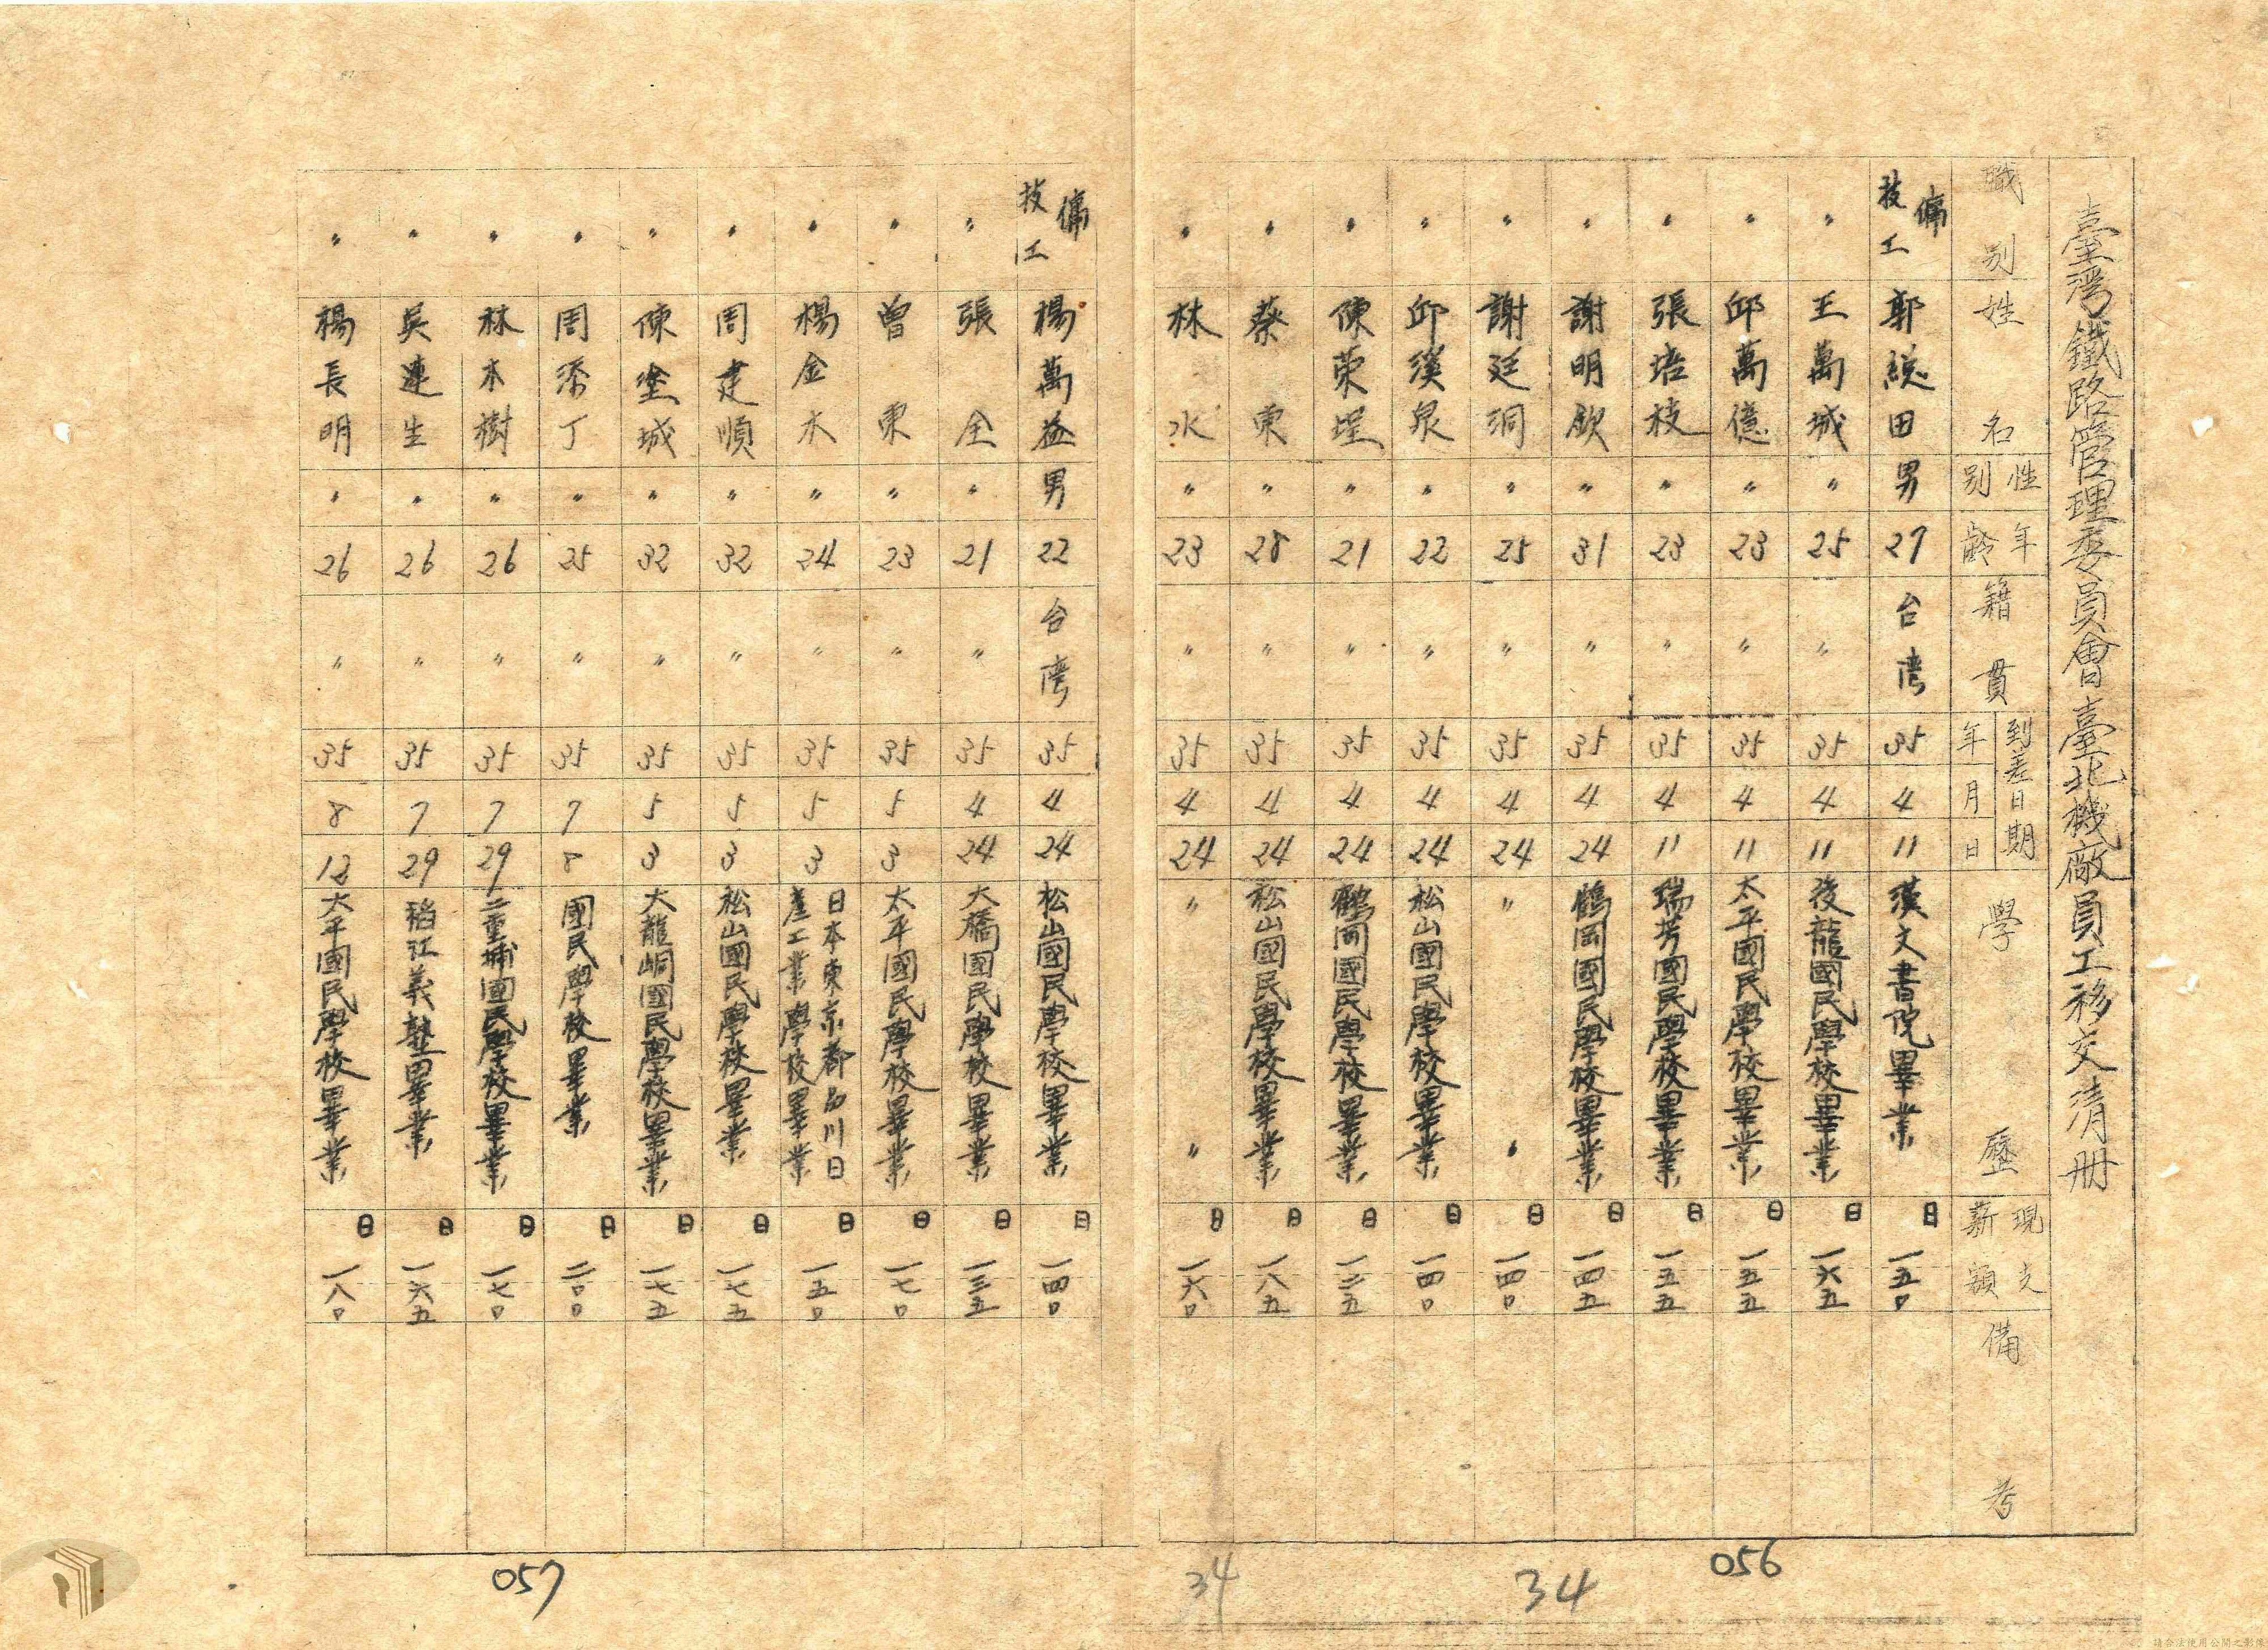 臺灣鐵路管理委員會臺北機廠員工移交清册
職別 姓名 性別 年齡 籍貫 到差日期 年 月 日 學歷 現支薪額 備考
傭技工 郭総田 男 27 台湾 35 4 11 漢文書院畢業 日一五〇
〃 王萬城 〃 25 〃 35 4 11 後龍國民學校畢業 日一六五
〃 邱萬億 〃 23 〃 35 4 11 太平國民學校畢業 日一五五
〃 張培枝 〃 23 〃 35 4 11 瑞芳國民學校畢業 日一五五
〃 謝明欽 〃 31 〃 35 4 24 鶴岡國民學校畢業 日一四五
〃 謝廷洞 〃 25 〃 35 4 24 〃 〃 日一四〇
〃 邱漢泉 〃 22 〃 35 4 24 松山國民學校畢業 日一四〇
〃 陳荣埕 〃 21 〃 35 4 24 鶴岡國民學校畢業 日一三五
〃 蔡東 〃 28 〃 35 4 24 松山國民學校畢業 日一八五
〃 林水 〃 23 〃 35 4 24 〃 〃 日一六〇
056
34
34
傭技工 楊萬益 男 22 台湾 35 4 24 松山國民學校畢業 日一四〇
〃 張全 〃 21 〃 35 4 24 大橋國民學校畢業 日一三五
〃 曾東 〃 23 〃 35 5 3 太平國民學校畢業 日一七〇
〃 楊金木 〃 24 〃 35 5 3 日本東京都品川日產工業學校畢業 日一五〇
〃 周建順 〃 32 〃 35 5 3 松山國民學校畢業 日一七五
〃 陳塗城 〃 32 〃 35 5 3 大龍峒國民學校畢業 日一七五
〃 周添丁 〃 25 〃 35 7 8 國民學校畢業 日二〇〇
〃 林木樹 〃 26 〃 35 7 29 二重埔國民學校畢業 日一七〇
〃 吳連生 〃 26 〃 35 7 29 稻江義塾畢業 日一六五
〃 楊長明 〃 26 〃 35 8 13 太平國民學校畢業 日一八〇
057